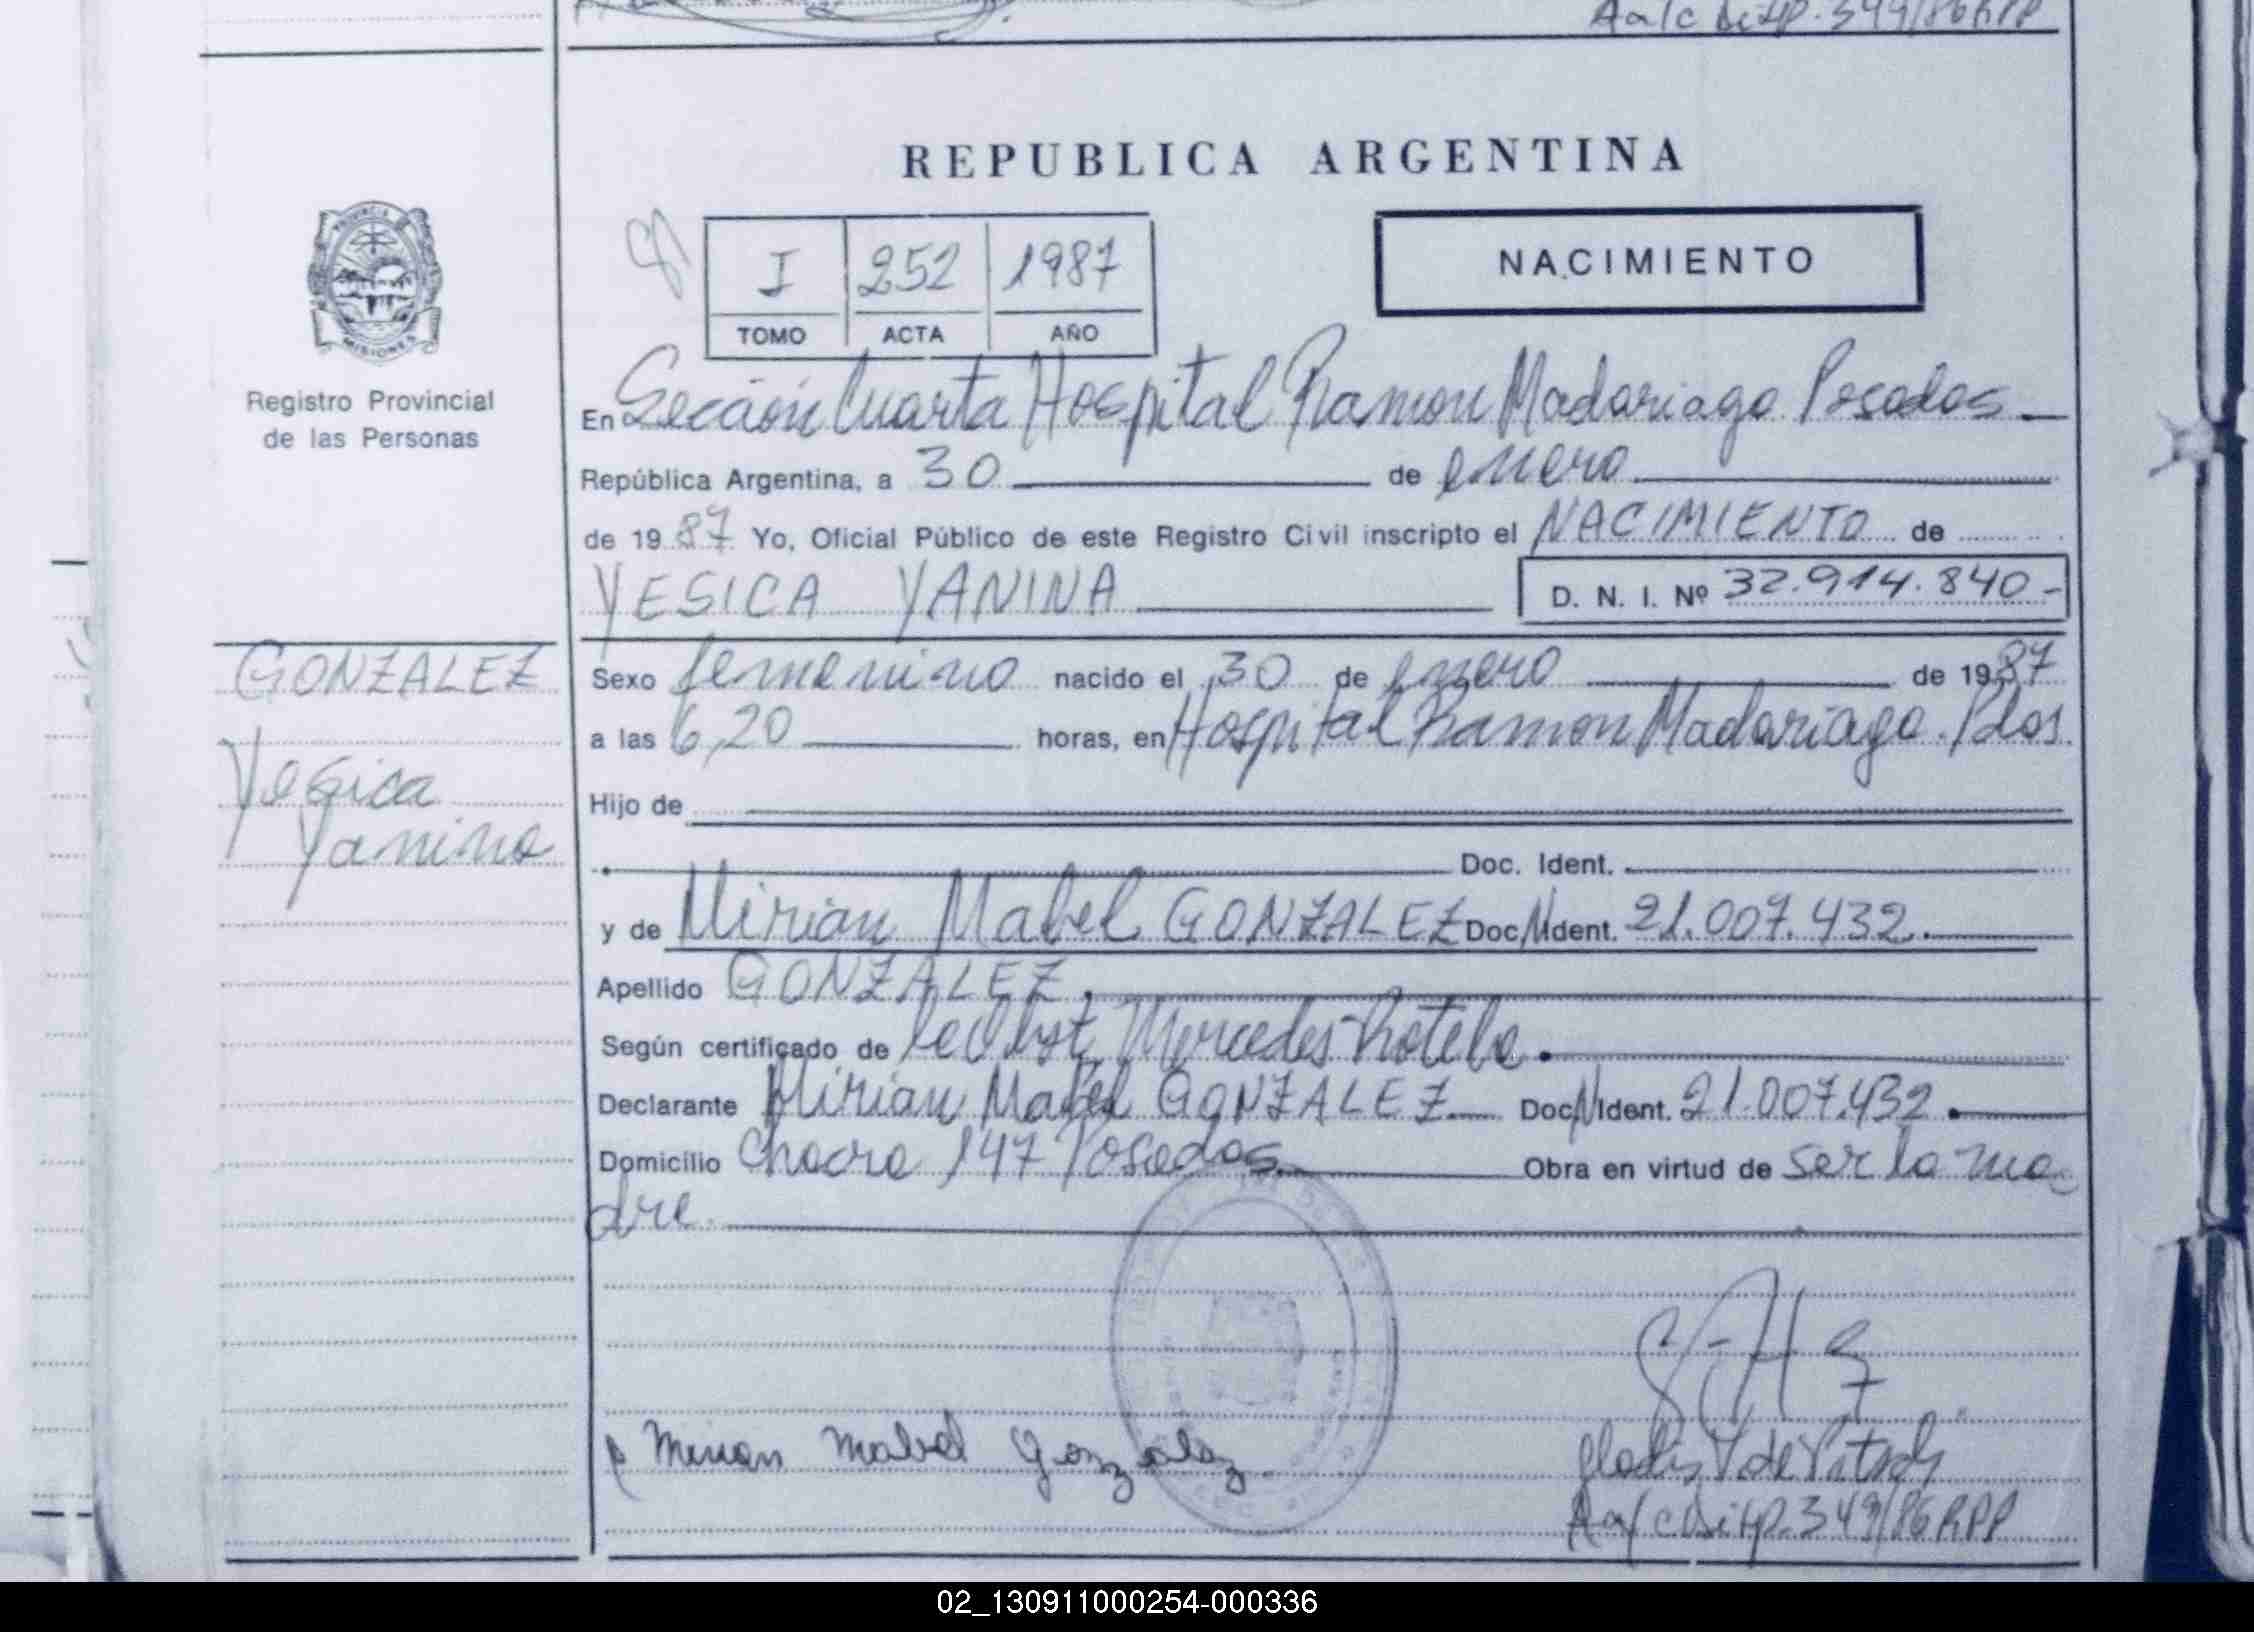 Aa/c Disp. 349/86 RPP
REPUBLICA ARGENTINA
PROVINCIA DE
MISIONES
Registro Provincial
de las Personas
I 252 1987
TOMO ACTA AÑO
NACIMIENTO
En Sección Cuarta Hospital Ramon Madariaga Posadas
República Argentina, a 30 de enero
de 1987 Yo, Oficial Público de este Registro Civil inscripto el NACIMIENTO de
YESICA YANINA D. N. I. Nº 32.914.840-
GONZALEZ
Yesica
Yanina
Sexo femenino nacido el 30 de enero de 1987
a las 6,20 horas, en Hospital Ramon Madariaga. Pdas.
Hijo de
Doc. Ident.
y de Mirian Mabel GONZALEZ Doc. N. Ident. 21.007.432.
Apellido GONZALEZ.
Según certificado de la Obst. Mercedes Rotela.
Declarante Mirian Mabel GONZALEZ Doc. N. Ident. 21.007.432.
Domicilio Chacra 147 Posadas Obra en virtud de ser la ma
dre.
Mirian Mabel Gonzalez
Gladis V. de
Aa/c Disp. 349/86 RPP
02_130911000254-000336